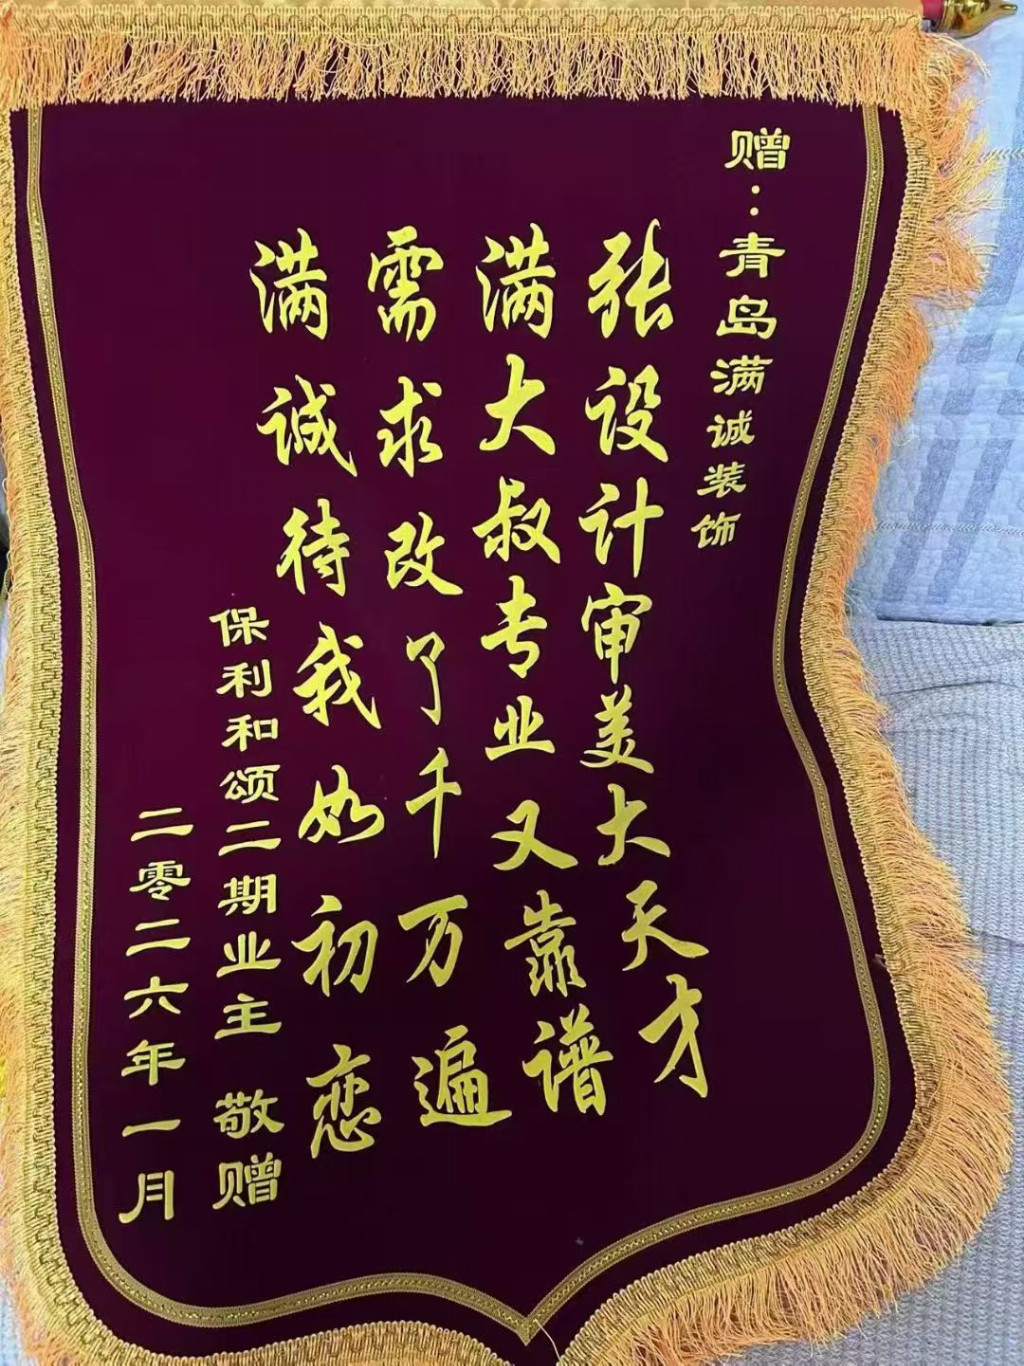 赠：青岛满诚装饰
张设计审美大天才
满大叔专业又靠谱
需求改了千万遍
满诚待我如初恋
保利和颂二期业主 敬赠
二零二六年一月